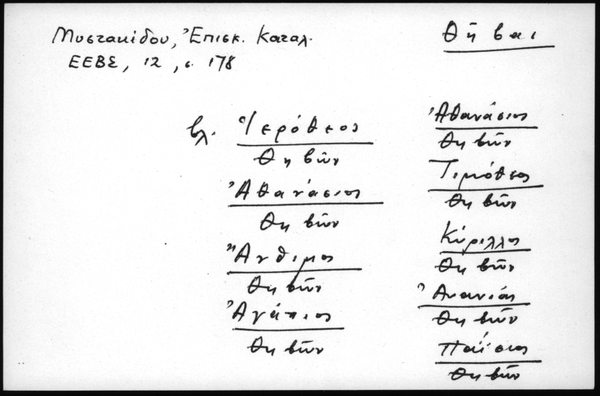 Μυστακίδου, Ἐπισκ. Καταλ.
ΕΕΒΣ, 12, σ. 178
Θῆβαι
βλ. Ἱερόθεος
Θηβῶν
Ἀθανάσιος
Θηβῶν
Ἄνθιμος
Θηβῶν
Ἀγάπιος
Θηβῶν
Ἀθανάσιος
Θηβῶν
Τιμόθεος
Θηβῶν
Κύριλλος
Θηβῶν
Ἀνανίας
Θηβῶν
Παΐσιος
Θηβῶν